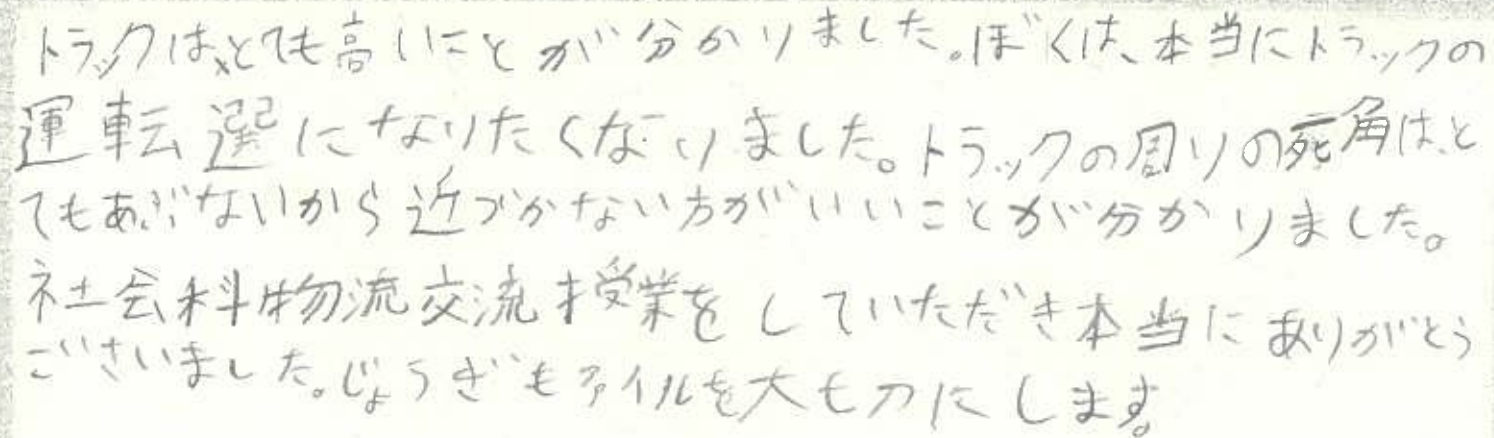 トラックは、とても高いことが分かりました。ぼくは、本当にトラックの
運転選になりたくなりました。トラックの周りの死角は、と
てもあぶないから近づかない方がいいことが分かりました。
社会科物流交流授業をしていただき本当にありがとう
ございました。じょうぎもファイルを大切にします。